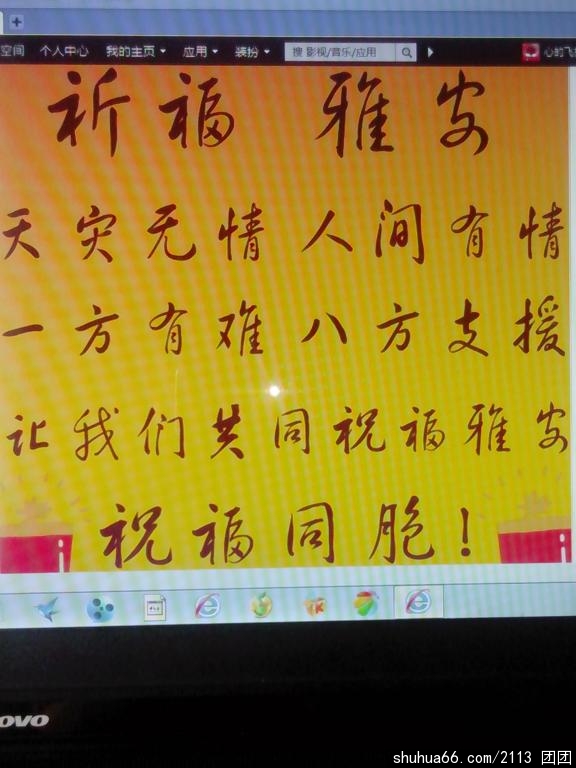 空间 个人中心 我的主页 应用 装扮 搜 影视/音乐/应用 心的飞
祈福 雅安
天灾无情 人间有情
一方有难 八方支援
让我们共同祝福雅安
祝福同胞！
ovo
shuhua66.com/2113 团团